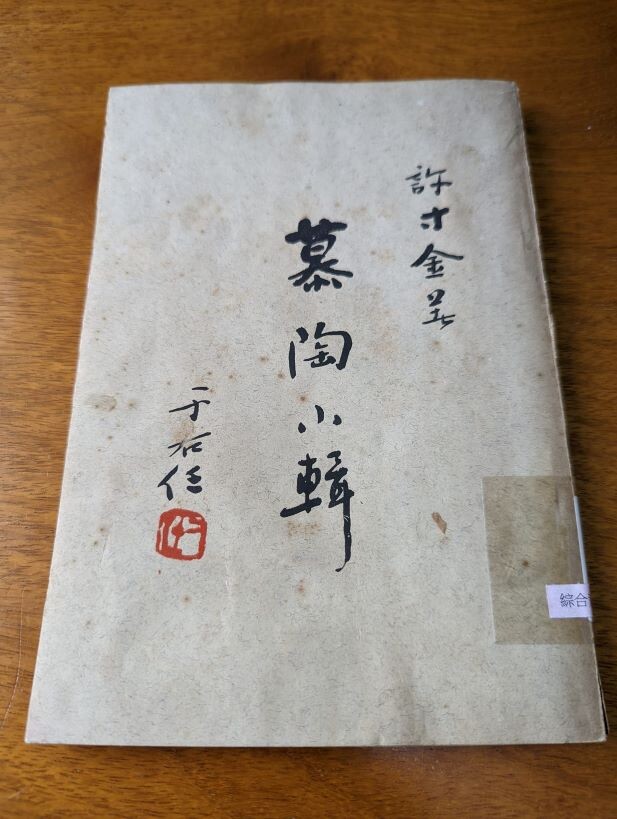 許寸金著
慕陶小輯
于右任
右任
綜合